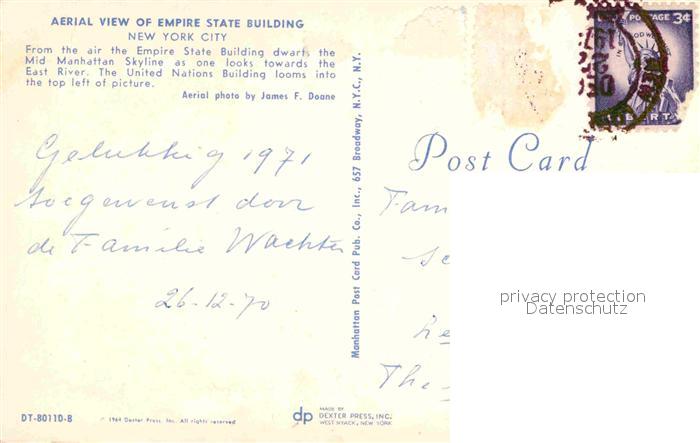 AERIAL VIEW OF EMPIRE STATE BUILDING
NEW YORK CITY
From the air the Empire State Building dwarfs the
Mid Manhattan Skyline as one looks towards the
East River. The United Nations Building looms into
the top left of picture.
Aerial photo by James F. Doane
Gelukkig 1971
toegewenst door
de Familie Wachter
26-12-70
DT-80110-B
© 1964 Dexter Press, Inc. All rights reserved
Manhattan Post Card Pub. Co., Inc., 657 Broadway, N.Y.C., N.Y.
dp
MADE BY
DEXTER PRESS, INC.
WEST NYACK, NEW YORK
POSTAGE 3¢
LIBERTY
Post Card
Fam
privacy protection
Datenschutz
The